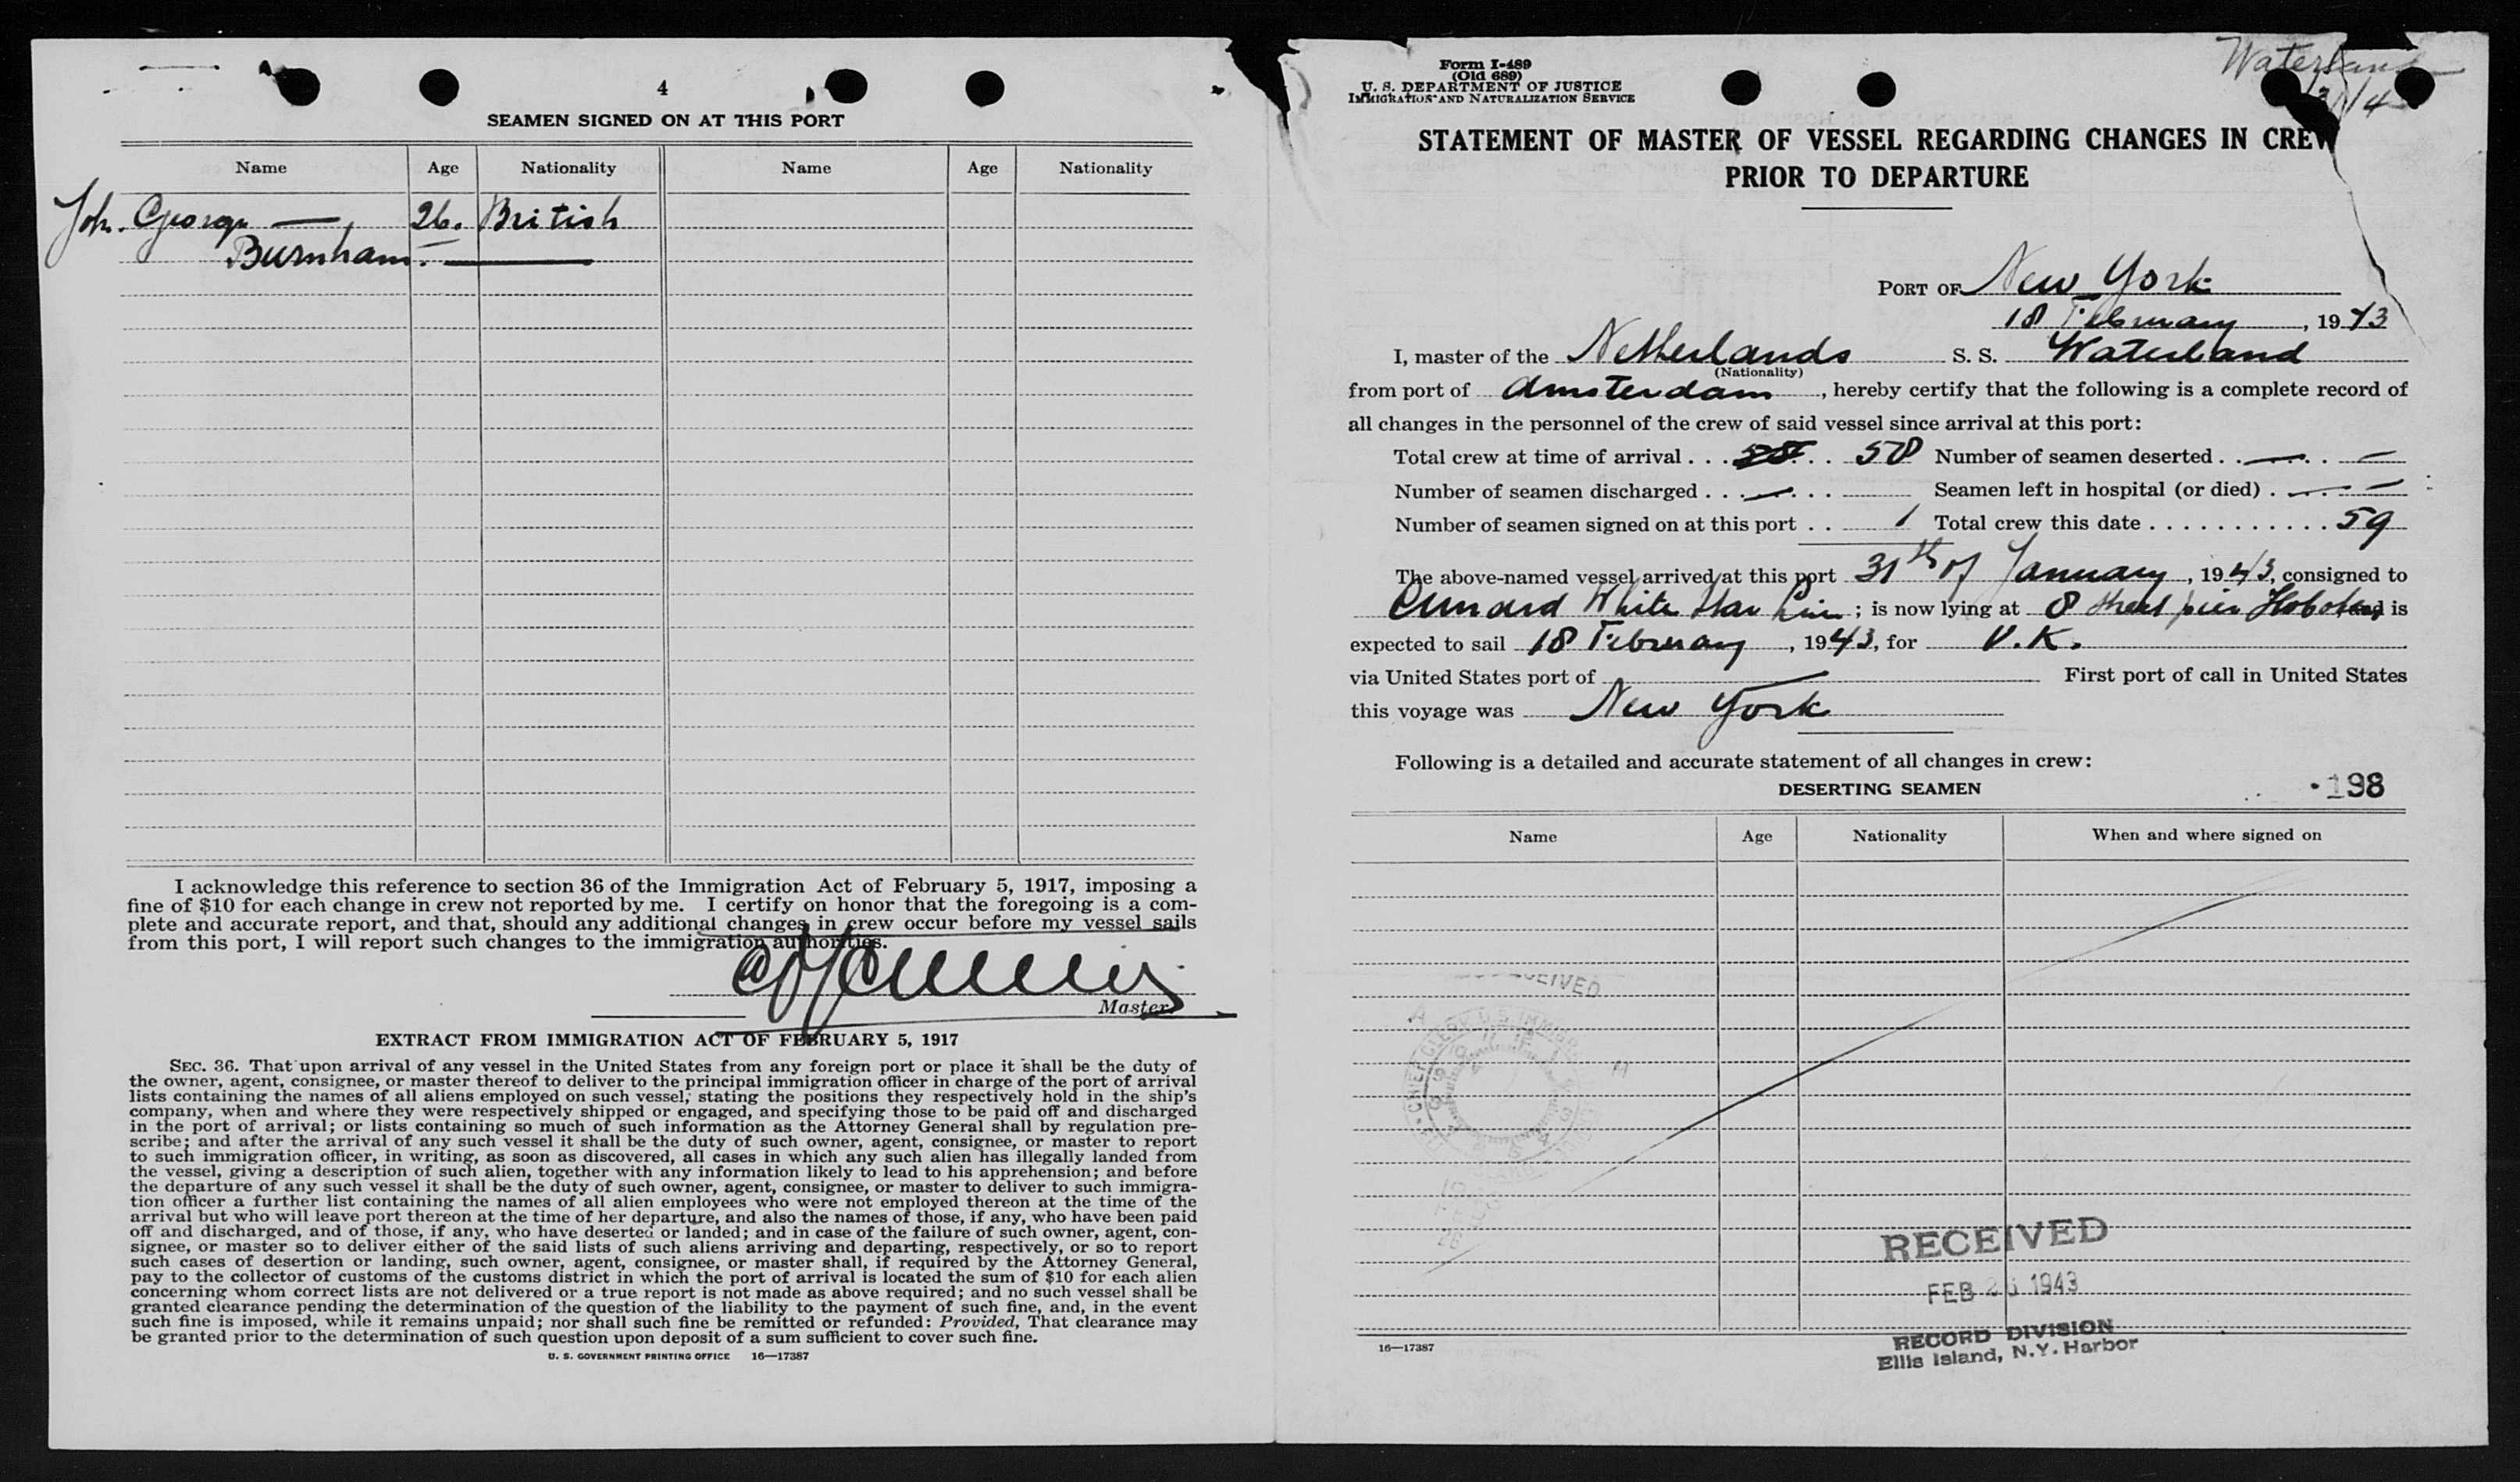 4
SEAMEN SIGNED ON AT THIS PORT
Name Age Nationality Name Age Nationality
Joh. George — 26. British
Burnham. —
I acknowledge this reference to section 36 of the Immigration Act of February 5, 1917, imposing a
fine of $10 for each change in crew not reported by me. I certify on honor that the foregoing is a com-
plete and accurate report, and that, should any additional changes in crew occur before my vessel sails
from this port, I will report such changes to the immigration authorities.
Master.
EXTRACT FROM IMMIGRATION ACT OF FEBRUARY 5, 1917
SEC. 36. That upon arrival of any vessel in the United States from any foreign port or place it shall be the duty of
the owner, agent, consignee, or master thereof to deliver to the principal immigration officer in charge of the port of arrival
lists containing the names of all aliens employed on such vessel, stating the positions they respectively hold in the ship's
company, when and where they were respectively shipped or engaged, and specifying those to be paid off and discharged
in the port of arrival; or lists containing so much of such information as the Attorney General shall by regulation pre-
scribe; and after the arrival of any such vessel it shall be the duty of such owner, agent, consignee, or master to report
to such immigration officer, in writing, as soon as discovered, all cases in which any such alien has illegally landed from
the vessel, giving a description of such alien, together with any information likely to lead to his apprehension; and before
the departure of any such vessel it shall be the duty of such owner, agent, consignee, or master to deliver to such immigra-
tion officer a further list containing the names of all alien employees who were not employed thereon at the time of the
arrival but who will leave port thereon at the time of her departure, and also the names of those, if any, who have been paid
off and discharged, and of those, if any, who have deserted or landed; and in case of the failure of such owner, agent, con-
signee, or master so to deliver either of the said lists of such aliens arriving and departing, respectively, or so to report
such cases of desertion or landing, such owner, agent, consignee, or master shall, if required by the Attorney General,
pay to the collector of customs of the customs district in which the port of arrival is located the sum of $10 for each alien
concerning whom correct lists are not delivered or a true report is not made as above required; and no such vessel shall be
granted clearance pending the determination of the question of the liability to the payment of such fine, and, in the event
such fine is imposed, while it remains unpaid; nor shall such fine be remitted or refunded: Provided, That clearance may
be granted prior to the determination of such question upon deposit of a sum sufficient to cover such fine.
U. S. GOVERNMENT PRINTING OFFICE 16—17387
Form I-489
(Old 689)
U. S. DEPARTMENT OF JUSTICE
IMMIGRATION AND NATURALIZATION SERVICE
Waterland
STATEMENT OF MASTER OF VESSEL REGARDING CHANGES IN CREW
PRIOR TO DEPARTURE
PORT OF New York
18 February, 1943
I, master of the Netherlands S. S. Waterland
(Nationality)
from port of Amsterdam, hereby certify that the following is a complete record of
all changes in the personnel of the crew of said vessel since arrival at this port:
Total crew at time of arrival . . . 58 Number of seamen deserted . . — . —
Number of seamen discharged . . . — . . . Seamen left in hospital (or died) . — —
Number of seamen signed on at this port . . 1 Total crew this date . . . . . . . . . . . 59
The above-named vessel arrived at this port 31th of January, 1943, consigned to
Cunard White Star Line; is now lying at 8 Street pier Hoboken and is
expected to sail 18 February, 1943, for U.K.
via United States port of — First port of call in United States
this voyage was New York
Following is a detailed and accurate statement of all changes in crew:
DESERTING SEAMEN
198
Name Age Nationality When and where signed on
RECEIVED
RECEIVED
FEB 26 1943
RECORD DIVISION
Ellis Island, N.Y. Harbor
16—17387